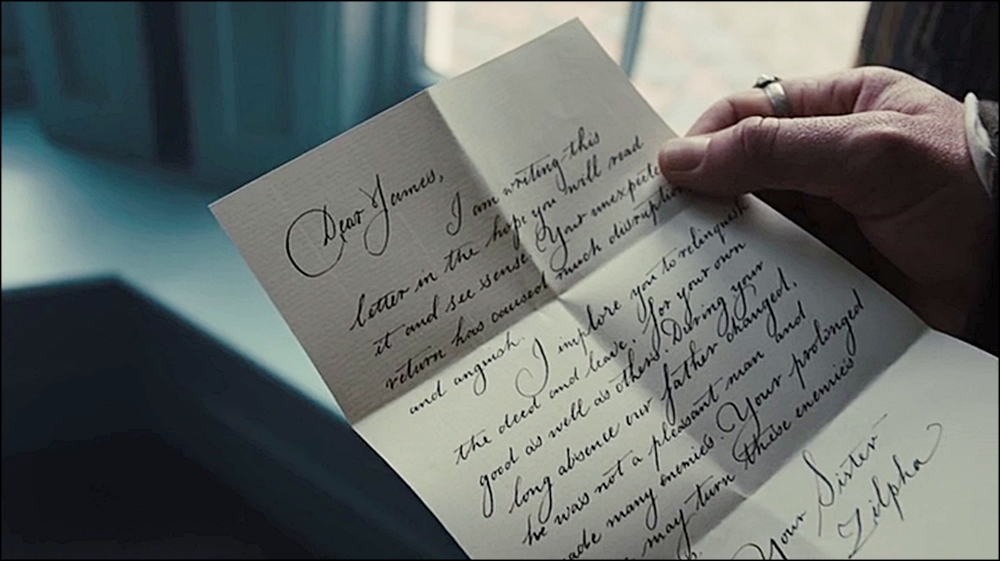 Dear James,
I am writing this
letter in the hope you will read
it and see sense. Your unexpected
return has caused much disruption
and anguish.
I implore you to relinquish
the deed and leave, for your own
good as well as others. During your
long absence our father changed,
he was not a pleasant man and
made many enemies. Your prolonged
may turn these enemies
Your Sister
Zilpha